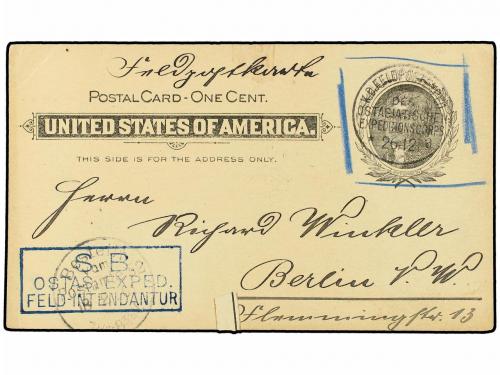 Feldpostkarte
POSTAL CARD - ONE CENT.
UNITED STATES OF AMERICA.
THIS SIDE IS FOR THE ADDRESS ONLY.
K.D. FELDPOST
DES
OSTASIATISCHEN
EXPEDITIONSCORPS
26 12
Herrn
Richard Winkler
Berlin N. W.
Flemmingstr. 13
S. B.
OSTAS. EXPED.
FELD-INTENDANTUR